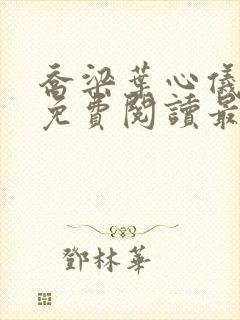 喬梁葉心儀
免費閱讀最
鄧林華